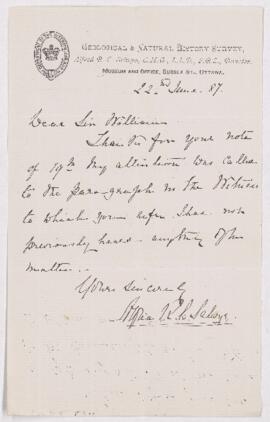 GEOLOGICAL & NATURAL HISTORY SURVEY,
Alfred R. C. Selwyn, C.M.G., LL.D., F.R.S., Director.
MUSEUM AND OFFICE, SUSSEX ST., OTTAWA.
22nd June 87.
Dear Sir William
Thanks for your note
of 19th My attention was called
to the paragraph in the Witness
to which you refer I had not
previously heard anything of the
matter.
Yours Sincerely
Alfred R C Selwyn